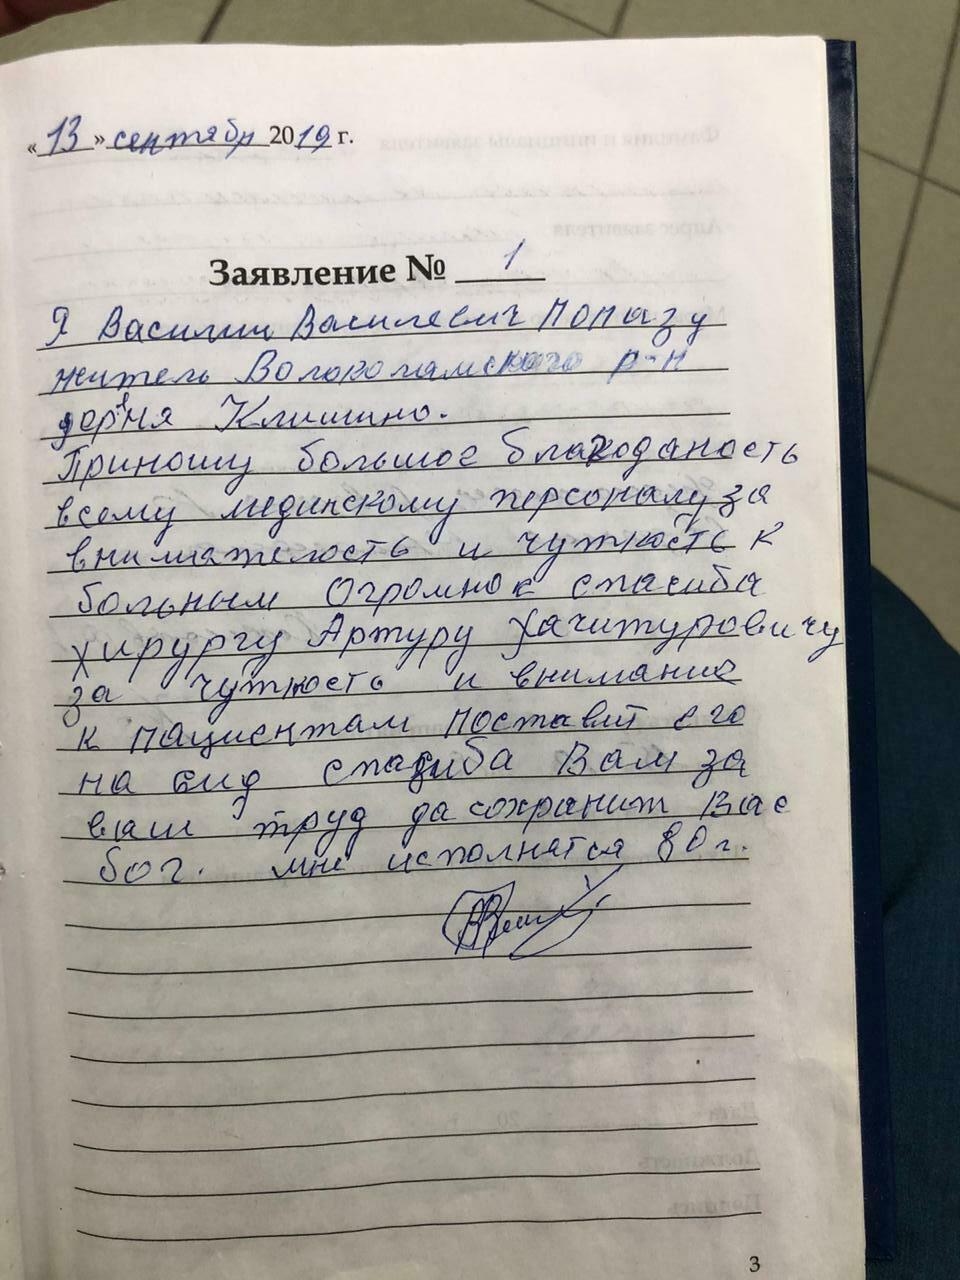 «13» сентябр 2019 г.
Заявление № 1
Я Василии Василевич Попазу
житель Волоколамского р-н
дерня Клишино.
Приношу большое благоданость
всему мединскому персоналу за
внимателость и чуткость к
больным Огромное спасиба
хирургу Артуру Хачитуровичу
за чуткость и внимание
к пациентам поставит его
на вид спасиба Вам за
ваш труд да сохранит Вас
бог. мне исполнятся 80 г.
3